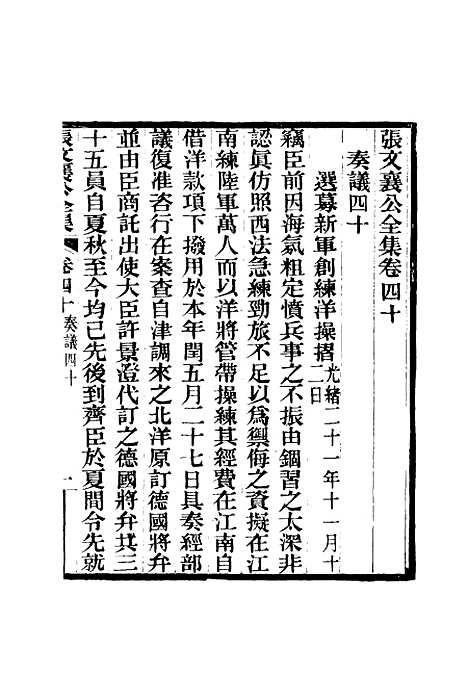 張文襄公全集卷四十
奏議四十
選募新軍創練洋操摺光緒二十一年十一月十二日
竊臣前因海氛粗定憤兵事之不振由錮習之太深非
認眞仿照西法急練勁旅不足以爲禦侮之資擬在江
南練陸軍萬人而以洋將管帶操練其經費在江南自
借洋款項下撥用於本年閏五月二十七日具奏經部
議復准咨行在案查自津調來之北洋原訂德國將弁
並由臣商託出使大臣許景澄代訂之德國將弁共三
十五員自夏秋至今均已先後到齊臣於夏間令先就
張文襄公全集 卷四十 奏議四十 一